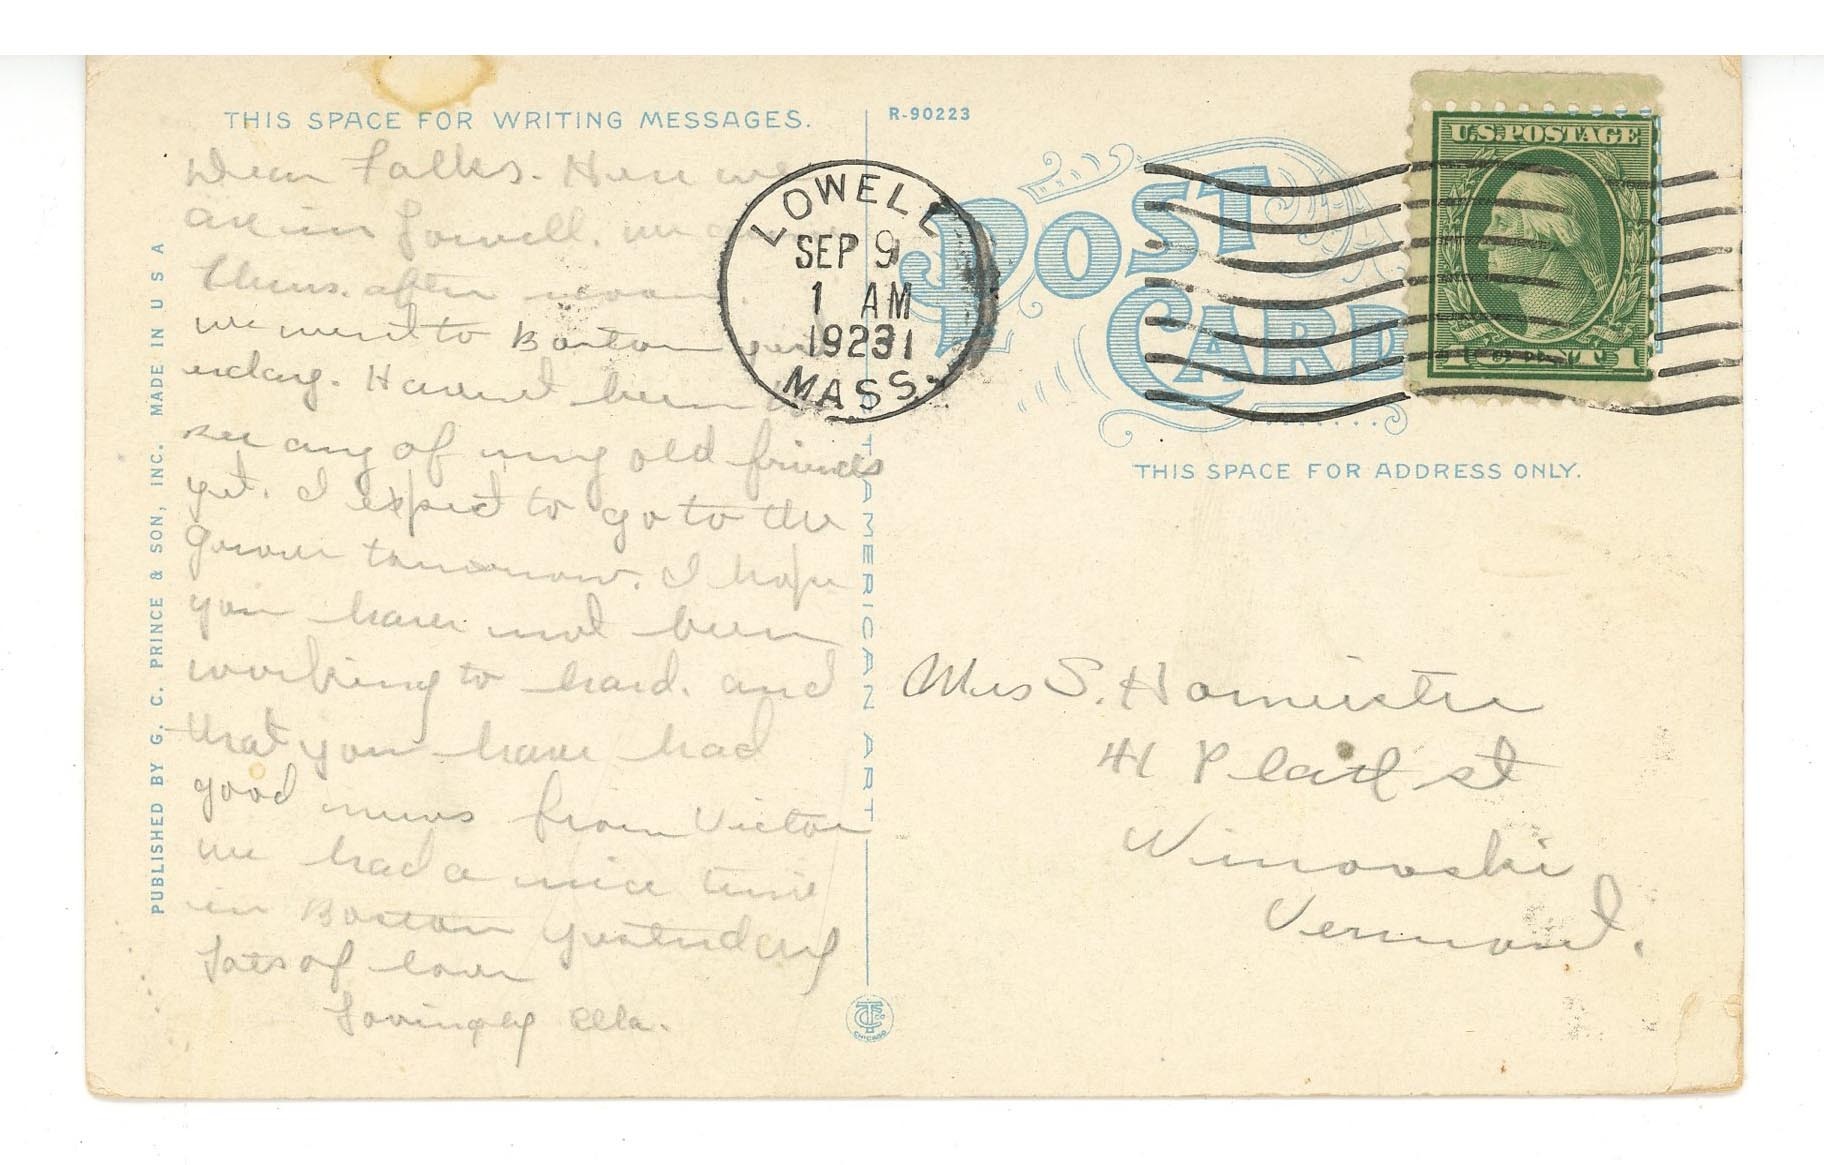 THIS SPACE FOR WRITING MESSAGES.
Dear Folks. Here we
are in Lowell. we
thurs. after noon.
we went to Boston yest
erday. Havent been to
see any of my old friends
yet. I expect to go to the
tomorrow. I hope
you have not been
working to hard. and
that you have had
good news from Victor
we had a nice time
in Boston yesterday
Lots of love
Lovingly Ella.
PUBLISHED BY G. C. PRINCE & SON, INC. MADE IN U S A
C.T. AMERICAN ART
R-90223
POST CARD
LOWELL
SEP 9
1 AM
19231
MASS.
U.S. POSTAGE
1 1
THIS SPACE FOR ADDRESS ONLY.
Mrs S.
41 Platt st
Winooski
Vermont.
CHICAGO